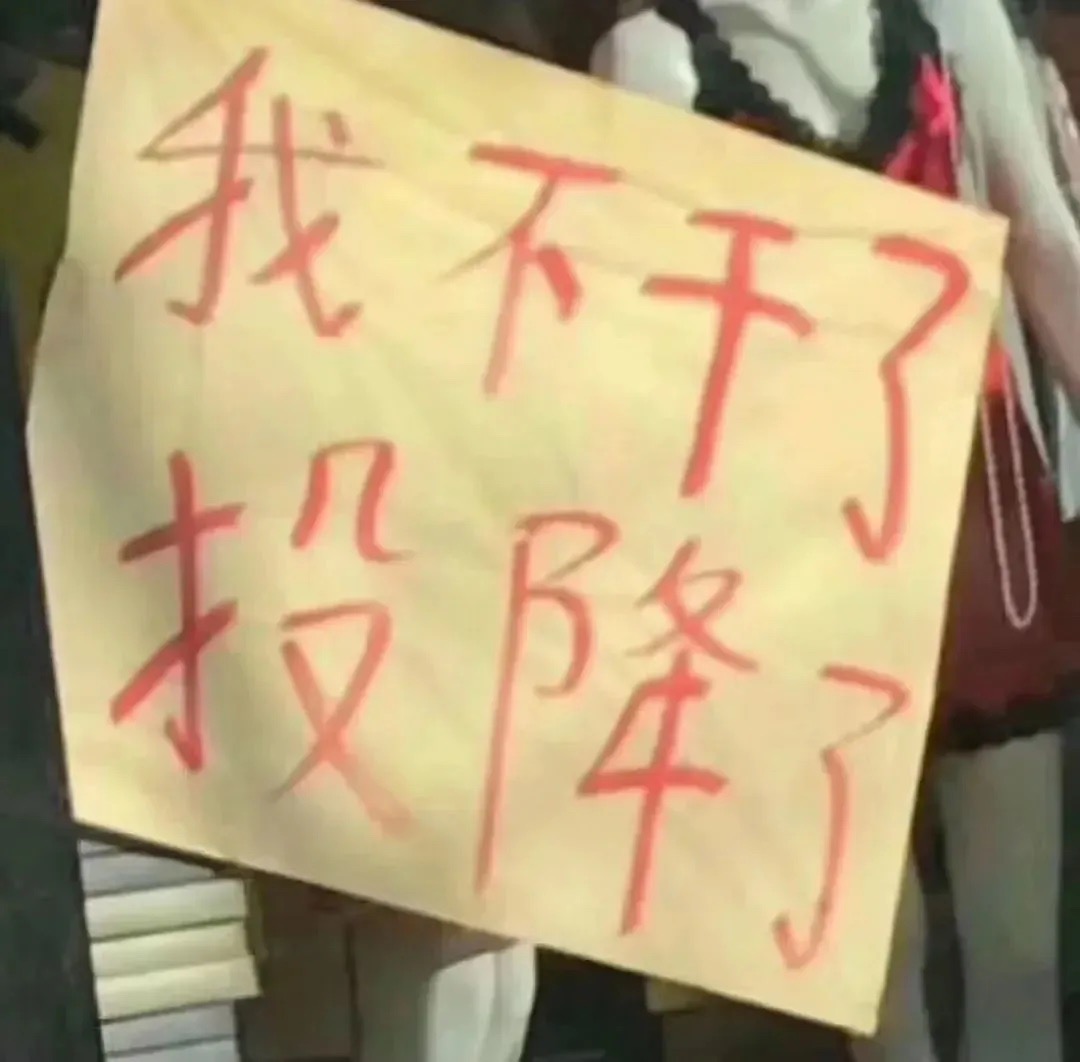 我不干了
投降了